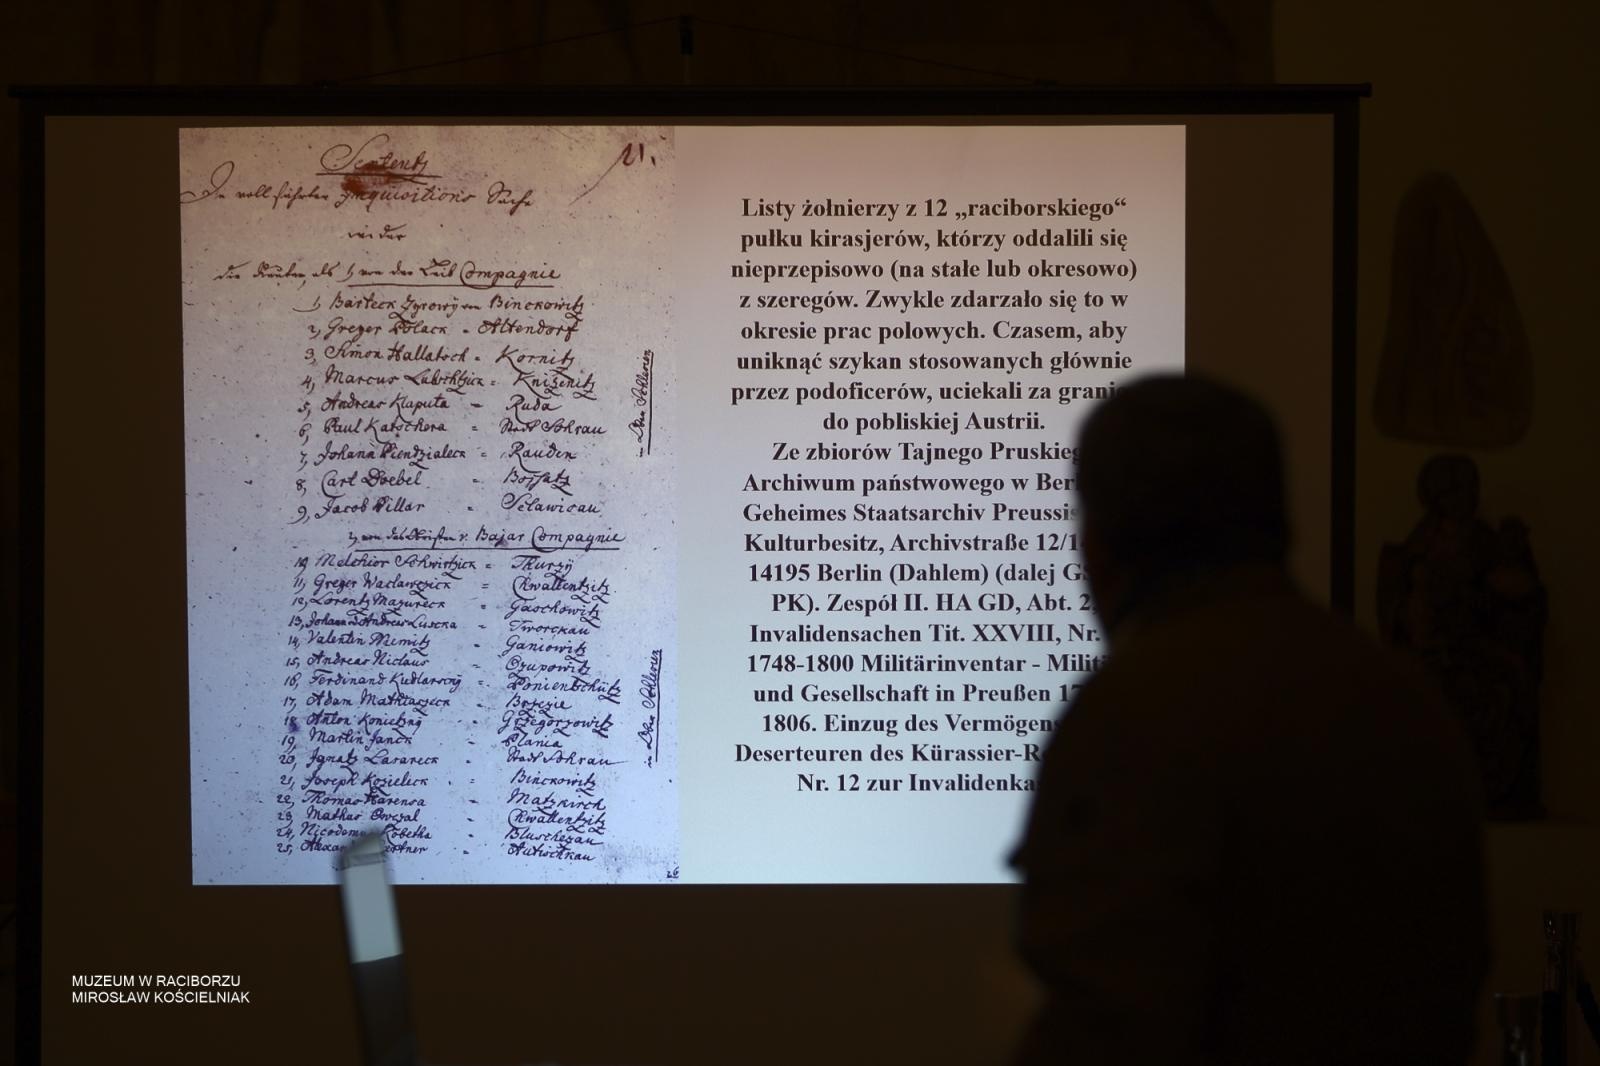 Sententz
11.
In voll führter Inquisitions Sache
wider
die Leib Compagnie
1, Barteck Binckowitz
2, Greger Polack - Altendorf
3, Simon Hallatsch = Kornitz
4, Marcus = Knizenitz
5, Andreas Klaputa = Ruda
6, Paul Katschera = Stadt Sohrau
7, Johann Piendzialeck = Rauden
8, Carl Doebel = Bossatz
9, Jacob Pillar =
v. Bajar Compagnie
10, Melchior =
11, Greger Waclawczick = Chwallentzitz
12, Lorentz Mazureck = Gaschowitz
13, Johann Andreas Luscka = Tworckau
14, Valentin Niemitz = Ganiowitz
15, Andreas Niclaus = Czupowitz
16, Ferdinand =
17, Adam = Brzezie
18, Anton = Grzegorzowitz
19, Martin Janck = Plania
20, Ignatz Lasareck = Stadt Sohrau
21, Joseph Kozieleck = Binckowitz
22, Thomas Harensa = Matzkirch
23, Mathus = Chwallentzitz
24, = Bluschczau
25, = Autischkau
26
Listy żołnierzy z 12 „raciborskiego“
pułku kirasjerów, którzy oddalili się
nieprzepisowo (na stałe lub okresowo)
z szeregów. Zwykle zdarzało się to w
okresie prac polowych. Czasem, aby
uniknąć szykan stosowanych głównie
przez podoficerów, uciekali za
do pobliskiej Austrii.
Ze zbiorów Tajnego Pruskieg
Archiwum państwowego w Ber
Geheimes Staatsarchiv Preussis
Kulturbesitz, Archivstraße 12/1
14195 Berlin (Dahlem) (dalej GS
PK). Zespół II. HA GD, Abt. 2,
Invalidensachen Tit. XXVIII, Nr.
1748-1800 Militärinventar - Milit
und Gesellschaft in Preußen 17
1806. Einzug des Vermögens
Deserteuren des Kürassier-R
Nr. 12 zur Invalidenka
MUZEUM W RACIBORZU
MIROSŁAW KOŚCIELNIAK